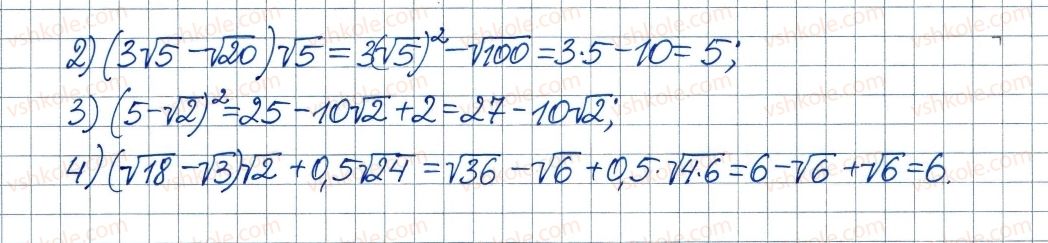 2) (3√5 − √20)√5 = 3(√5)² − √100 = 3·5 − 10 = 5;
3) (5 − √2)² = 25 − 10√2 + 2 = 27 − 10√2;
4) (√18 − √3)√2 + 0,5√24 = √36 − √6 + 0,5·√4·6 = 6 − √6 + √6 = 6.